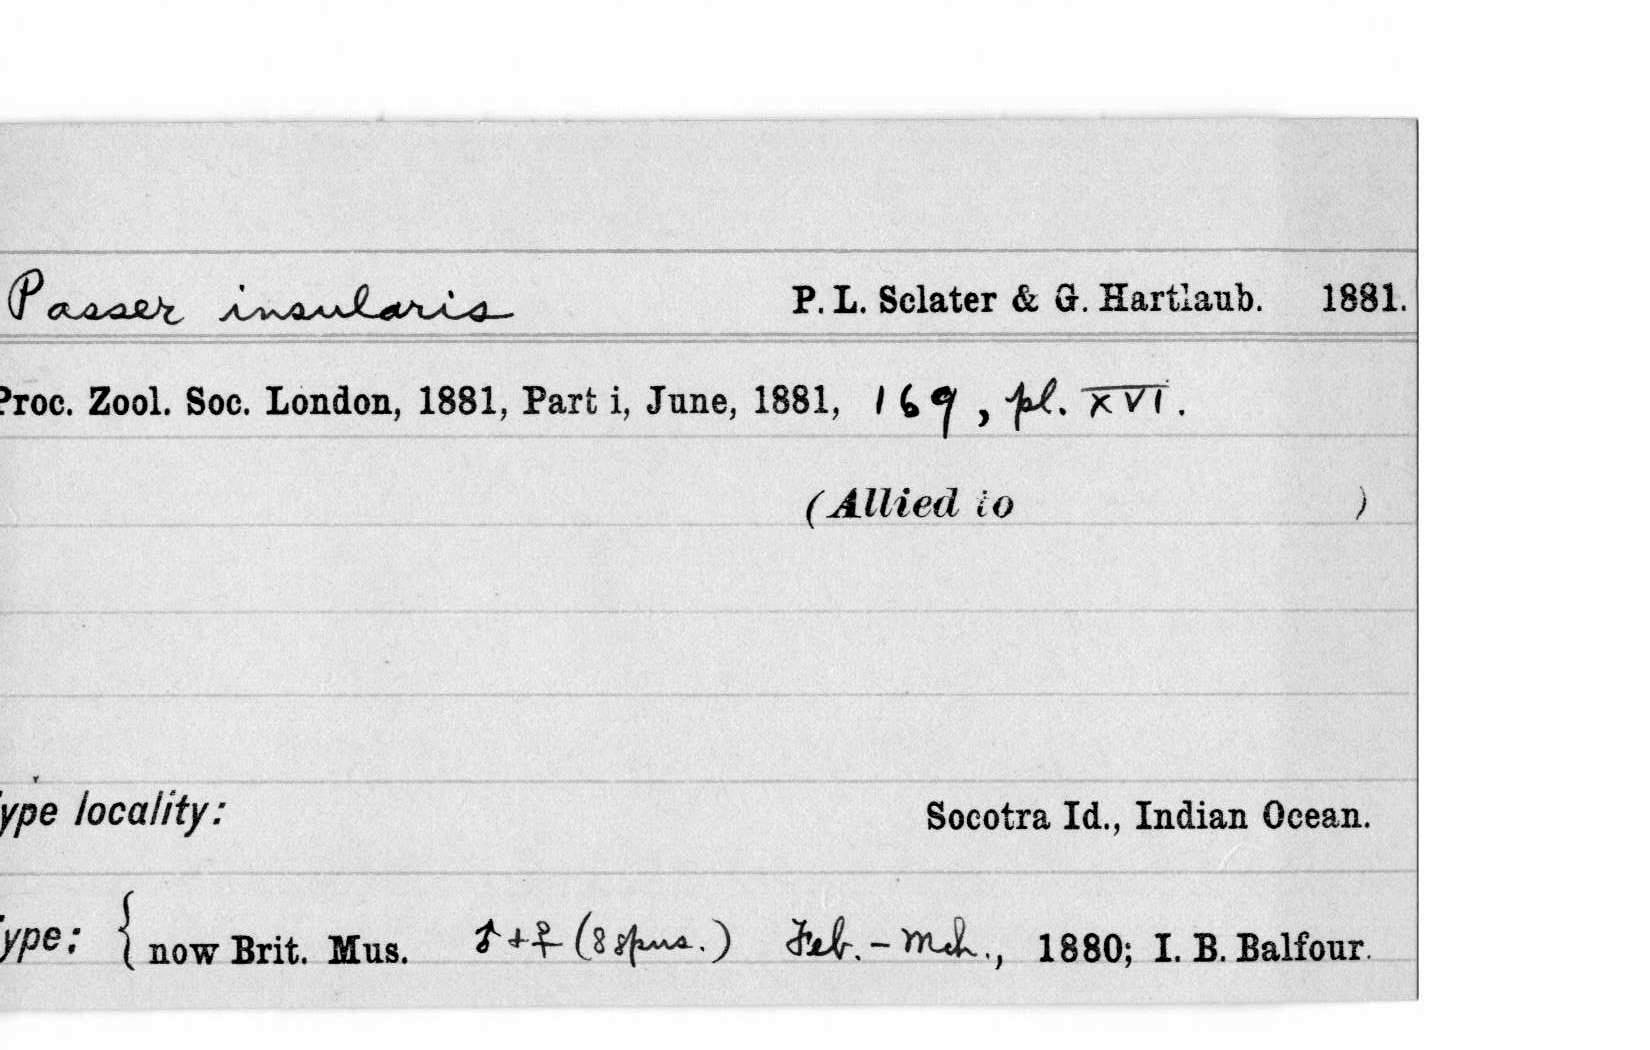 Passer insularis P. L. Sclater & G. Hartlaub. 1881.
Proc. Zool. Soc. London, 1881, Part i, June, 1881, 169, pl. XVI.
(Allied to )
Type locality: Socotra Id., Indian Ocean.
Type: { now Brit. Mus. ♂ + ♀ (8 spns.) Feb. - Mch., 1880; I. B. Balfour.